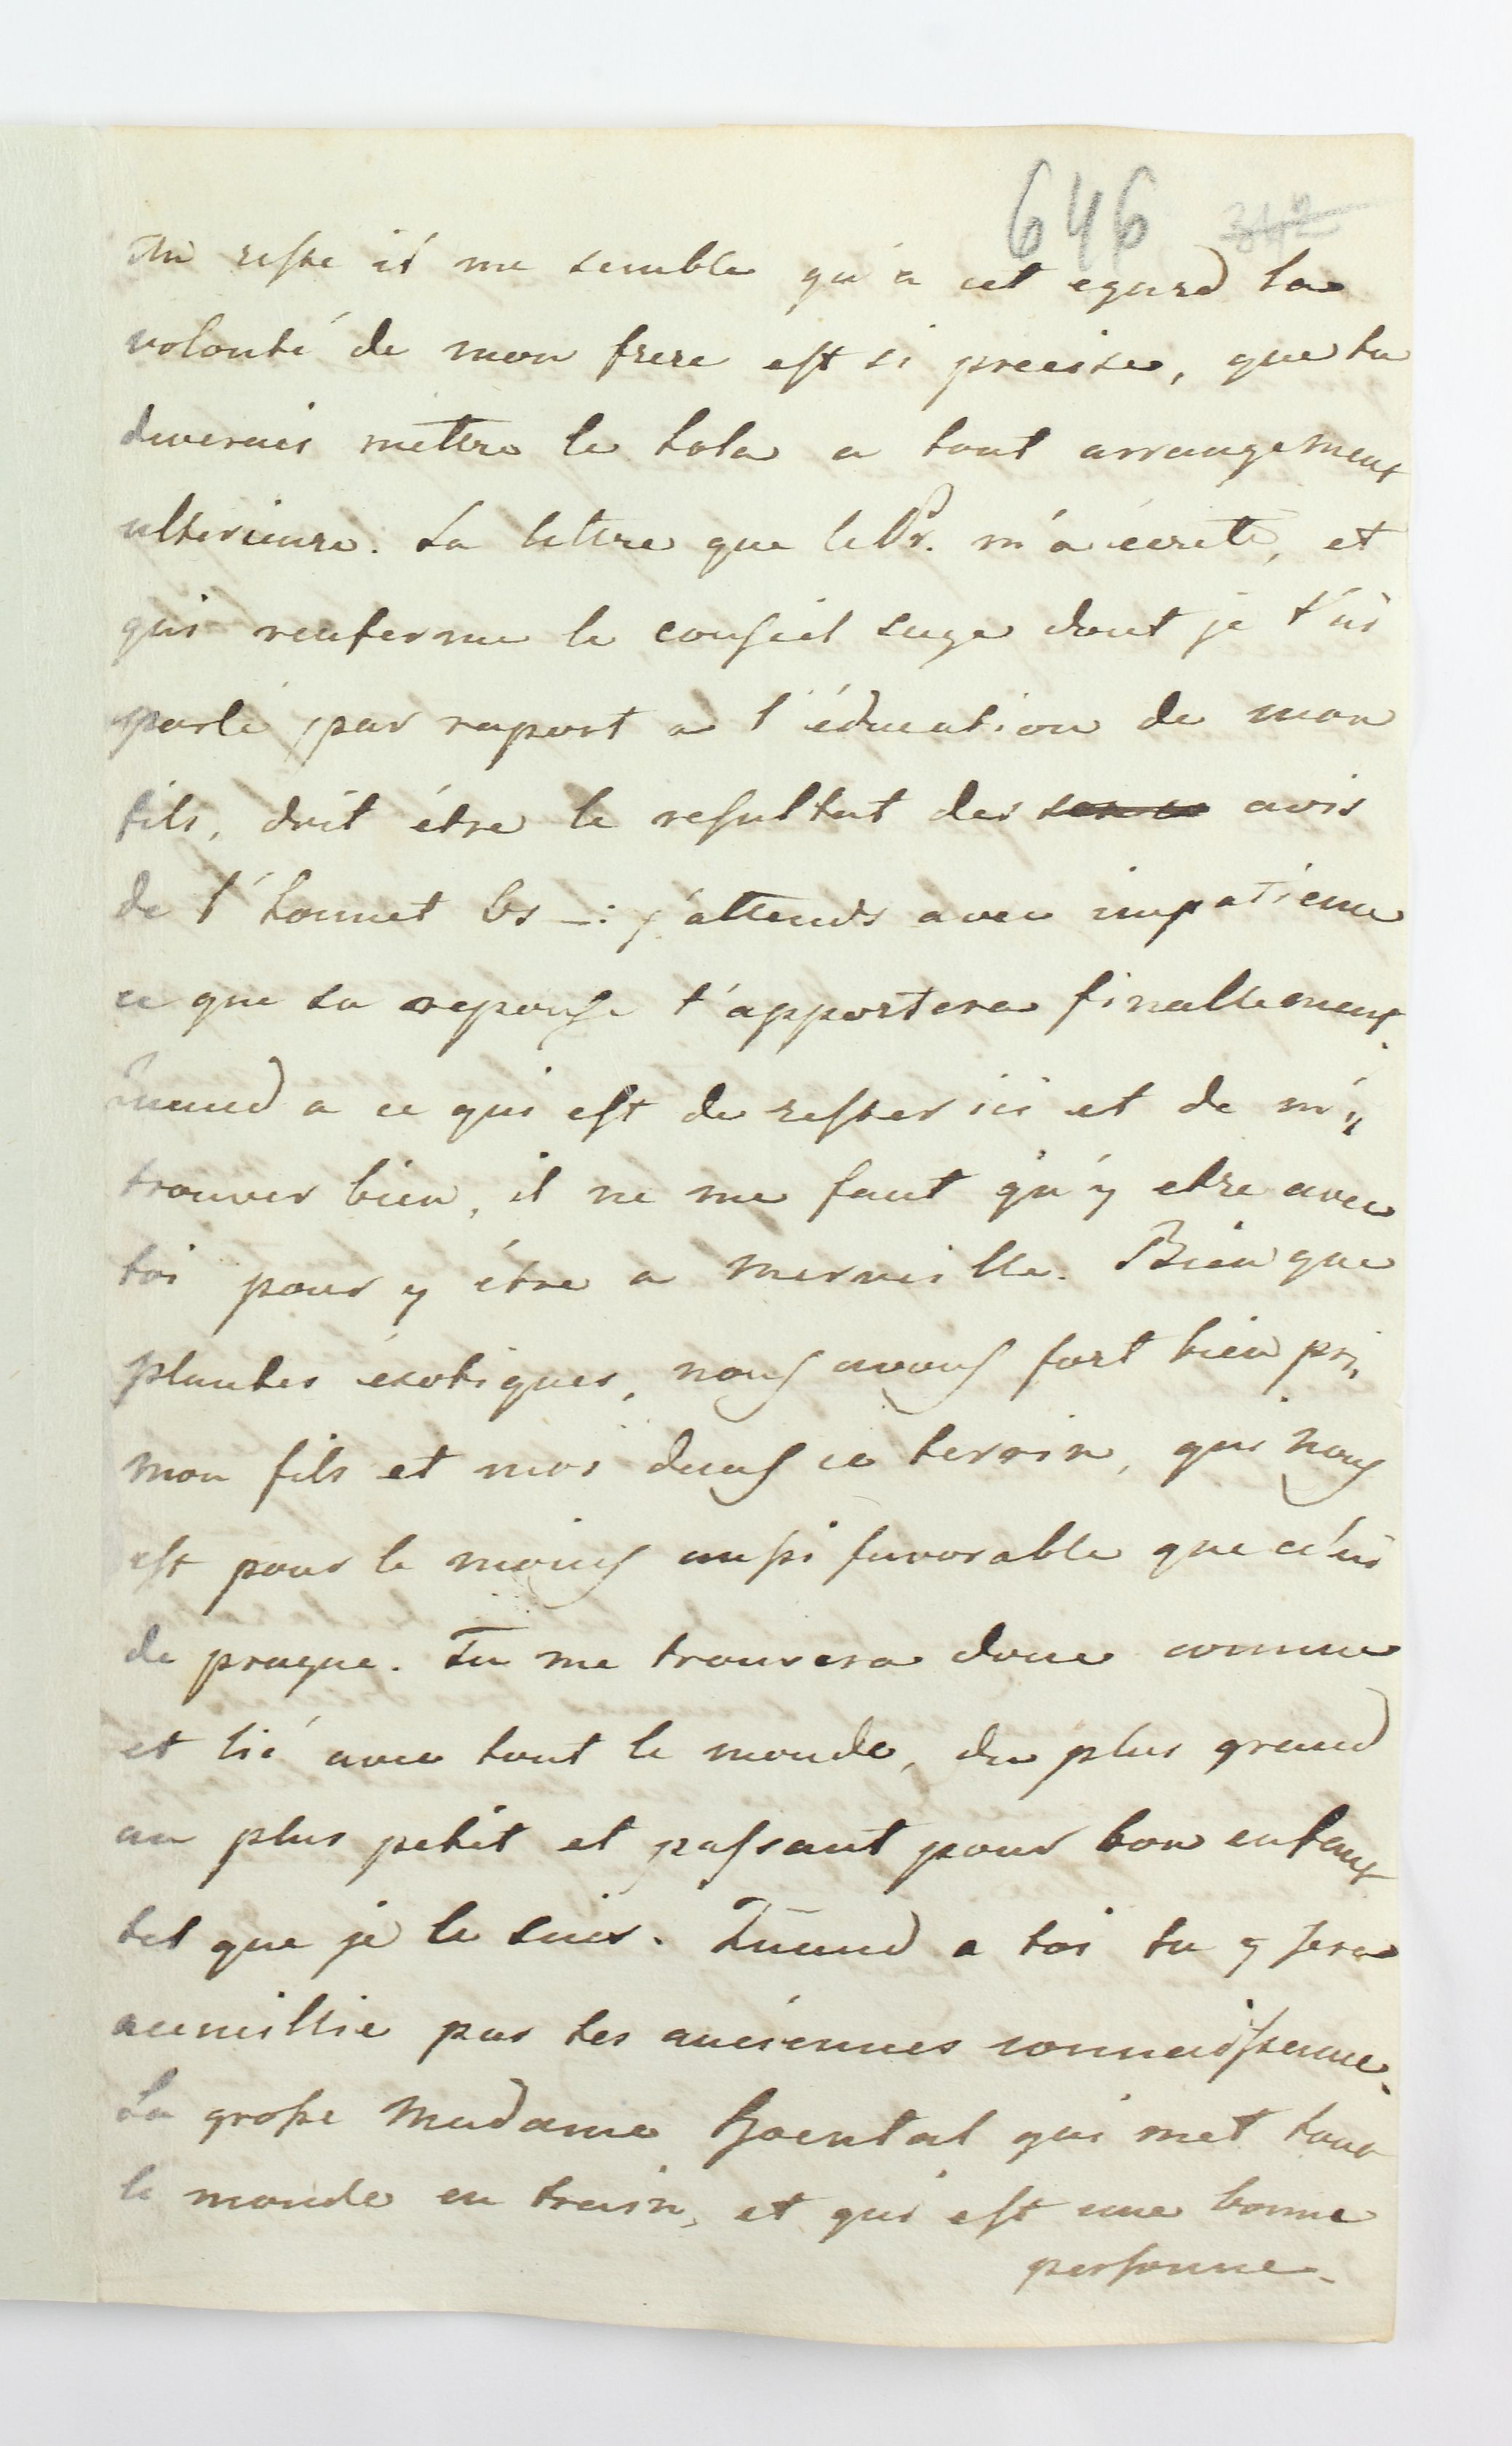 646 342
Au reste il me semble qu'a cet egard la
volonté de mon frere est si precise, que tu
deverais mettre le hola a tout arrangement
ulterieure. La lettre que le Pr. m'a écrite, et
qui renferme le conseil sage dont je t'ai
parlé par raport a l'éducation de mon
fils, doit étre le resultat des avis
de l'honnet Bs —: j'attends avec impatience
ce que sa reponse t'apportera finallement.
Quand a ce qui est de rester ici et de m'y
trouver bien, il ne me faut qu'y etre avec
toi pour y étre a merveille. Bien que
plantes éxotiques, nous avons fort bien pri,
mon fils et moi dans ce terrin, qui nous
est pour le moins aussi favorable que celui
de prague. Tu me trouvera donc connue
et lié avec tout le monde, du plus grand
au plus petit et passant pour bon enfant
tel que je le suis. Quand a toi tu y sera
acceuillie par tes anciennes connaissance.
La grosse Madame qui met tout
le monde en train, et qui est une bonne
personne.